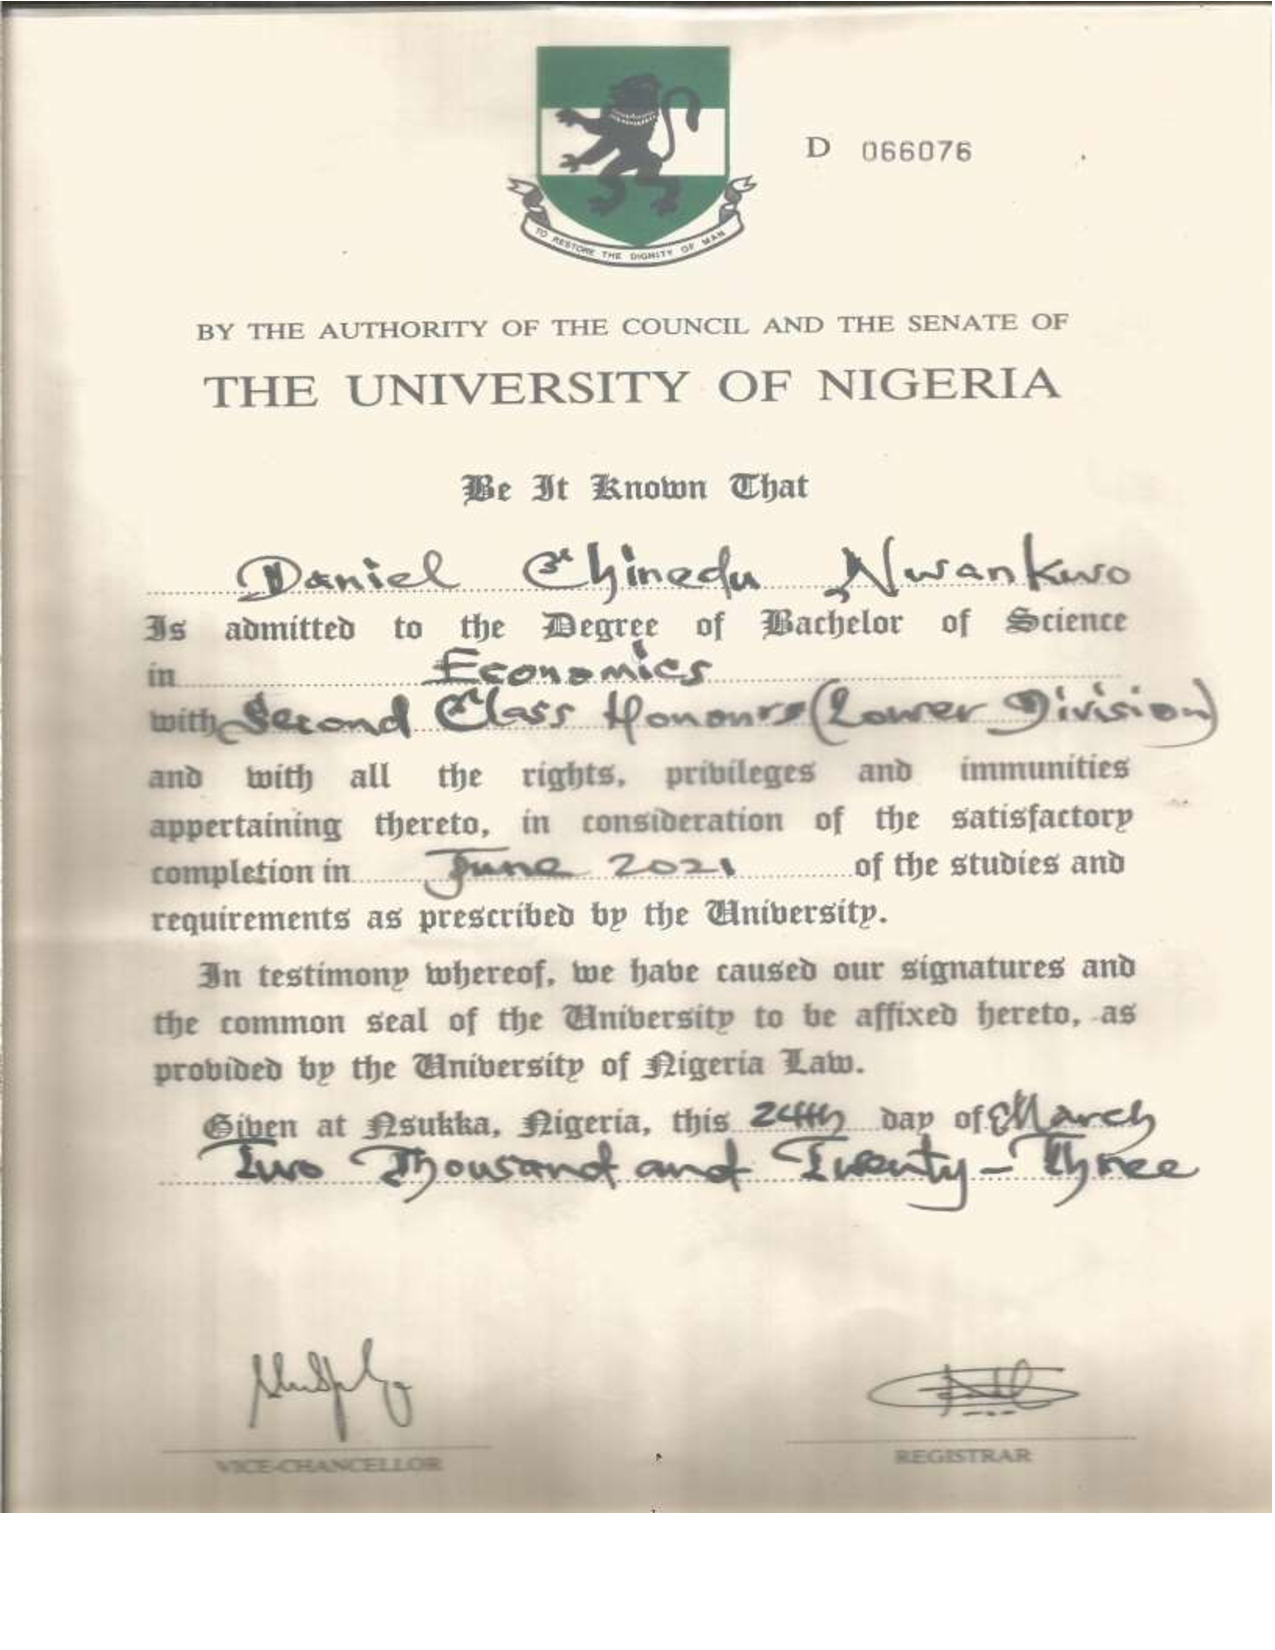 D 066076
TO RESTORE THE DIGNITY OF MAN
BY THE AUTHORITY OF THE COUNCIL AND THE SENATE OF
THE UNIVERSITY OF NIGERIA
Be It Known That
Daniel Chinedu Nwankwo
Is admitted to the Degree of Bachelor of Science
in Economics
with Second Class Honours (Lower Division)
and with all the rights, privileges and immunities
appertaining thereto, in consideration of the satisfactory
completion in June 2021 of the studies and
requirements as prescribed by the University.
In testimony whereof, we have caused our signatures and
the common seal of the University to be affixed hereto, as
provided by the University of Nigeria Law.
Given at Nsukka, Nigeria, this 24th day of March
Two Thousand and Twenty-Three
VICE-CHANCELLOR
REGISTRAR